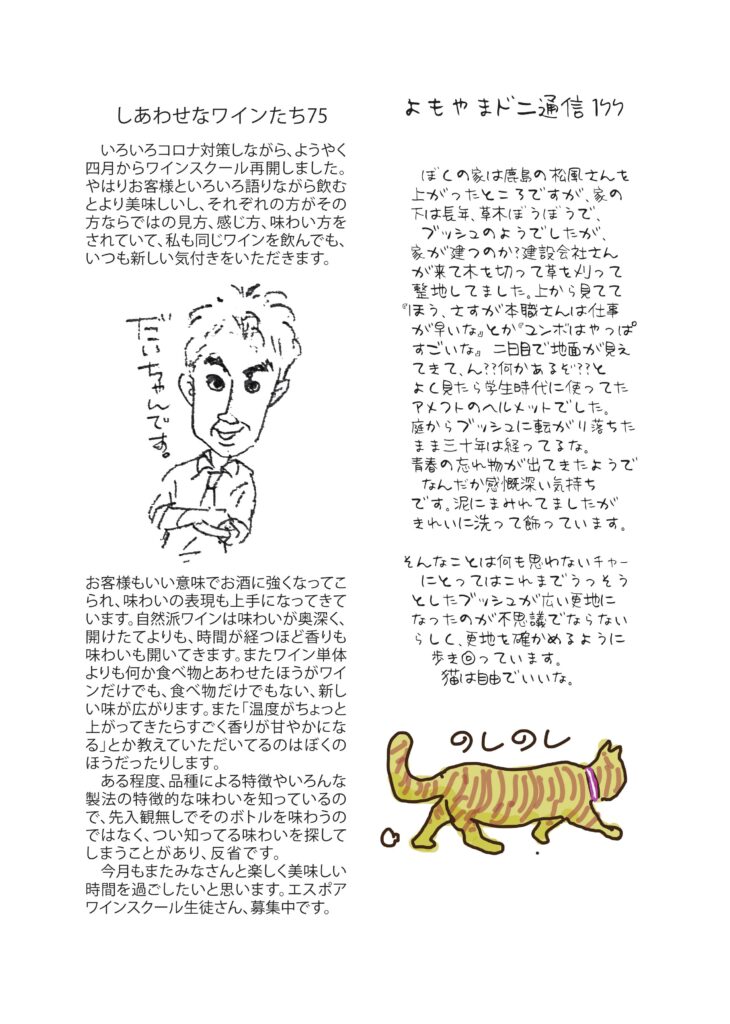 しあわせなワインたち75
　いろいろコロナ対策しながら、ようやく
四月からワインスクール再開しました。
やはりお客様といろいろ語りながら飲む
とより美味しいし、それぞれの方がその
方ならではの見方、感じ方、味わい方を
されていて、私も同じワインを飲んでも、
いつも新しい気付きをいただきます。
だいちゃんです。
お客様もいい意味でお酒に強くなってこ
られ、味わいの表現も上手になってきて
います。自然派ワインは味わいが奥深く、
開けたてよりも、時間が経つほど香りも
味わいも開いてきます。またワイン単体
よりも何か食べ物とあわせたほうがワイ
ンだけでも、食べ物だけでもない、新し
い味が広がります。また「温度がちょっと
上がってきたらすごく香りが甘やかにな
る」とか教えていただいてるのはぼくの
ほうだったりします。
　ある程度、品種による特徴やいろんな
製法の特徴的な味わいを知っているの
で、先入観無しでそのボトルを味わうの
ではなく、つい知ってる味わいを探して
しまうことがあり、反省です。
　今月もまたみなさんと楽しく美味しい
時間を過ごしたいと思います。エスポア
ワインスクール生徒さん、募集中です。
よもやまドニ通信177
ぼくの家は鹿島の松風さんを
上がったところですが、家の
下は長年、草木ぼうぼうで、
ブッシュのようでしたが、
家が建つのか?建設会社さん
が来て木を切って草を刈って
整地してました。上から見てて
『ほう、さすが本職さんは仕事
が早いな』とか『ユンボはやっぱ
すごいな』 二日目で地面が見え
てきて、ん??何かあるぞ??と
よく見たら学生時代に使ってた
アメフトのヘルメットでした。
庭からブッシュに転がり落ちた
まま三十年は経ってるな。
青春の忘れ物が出てきたようで
なんだか感慨深い気持ち
です。泥にまみれてましたが
きれいに洗って飾っています。
そんなことは何も思わないチャー
にとってはこれまでうっそう
としたブッシュが広い更地に
なったのが不思議でならない
らしく、更地を確かめるように
歩き回っています。
猫は自由でいいな。
のしのし